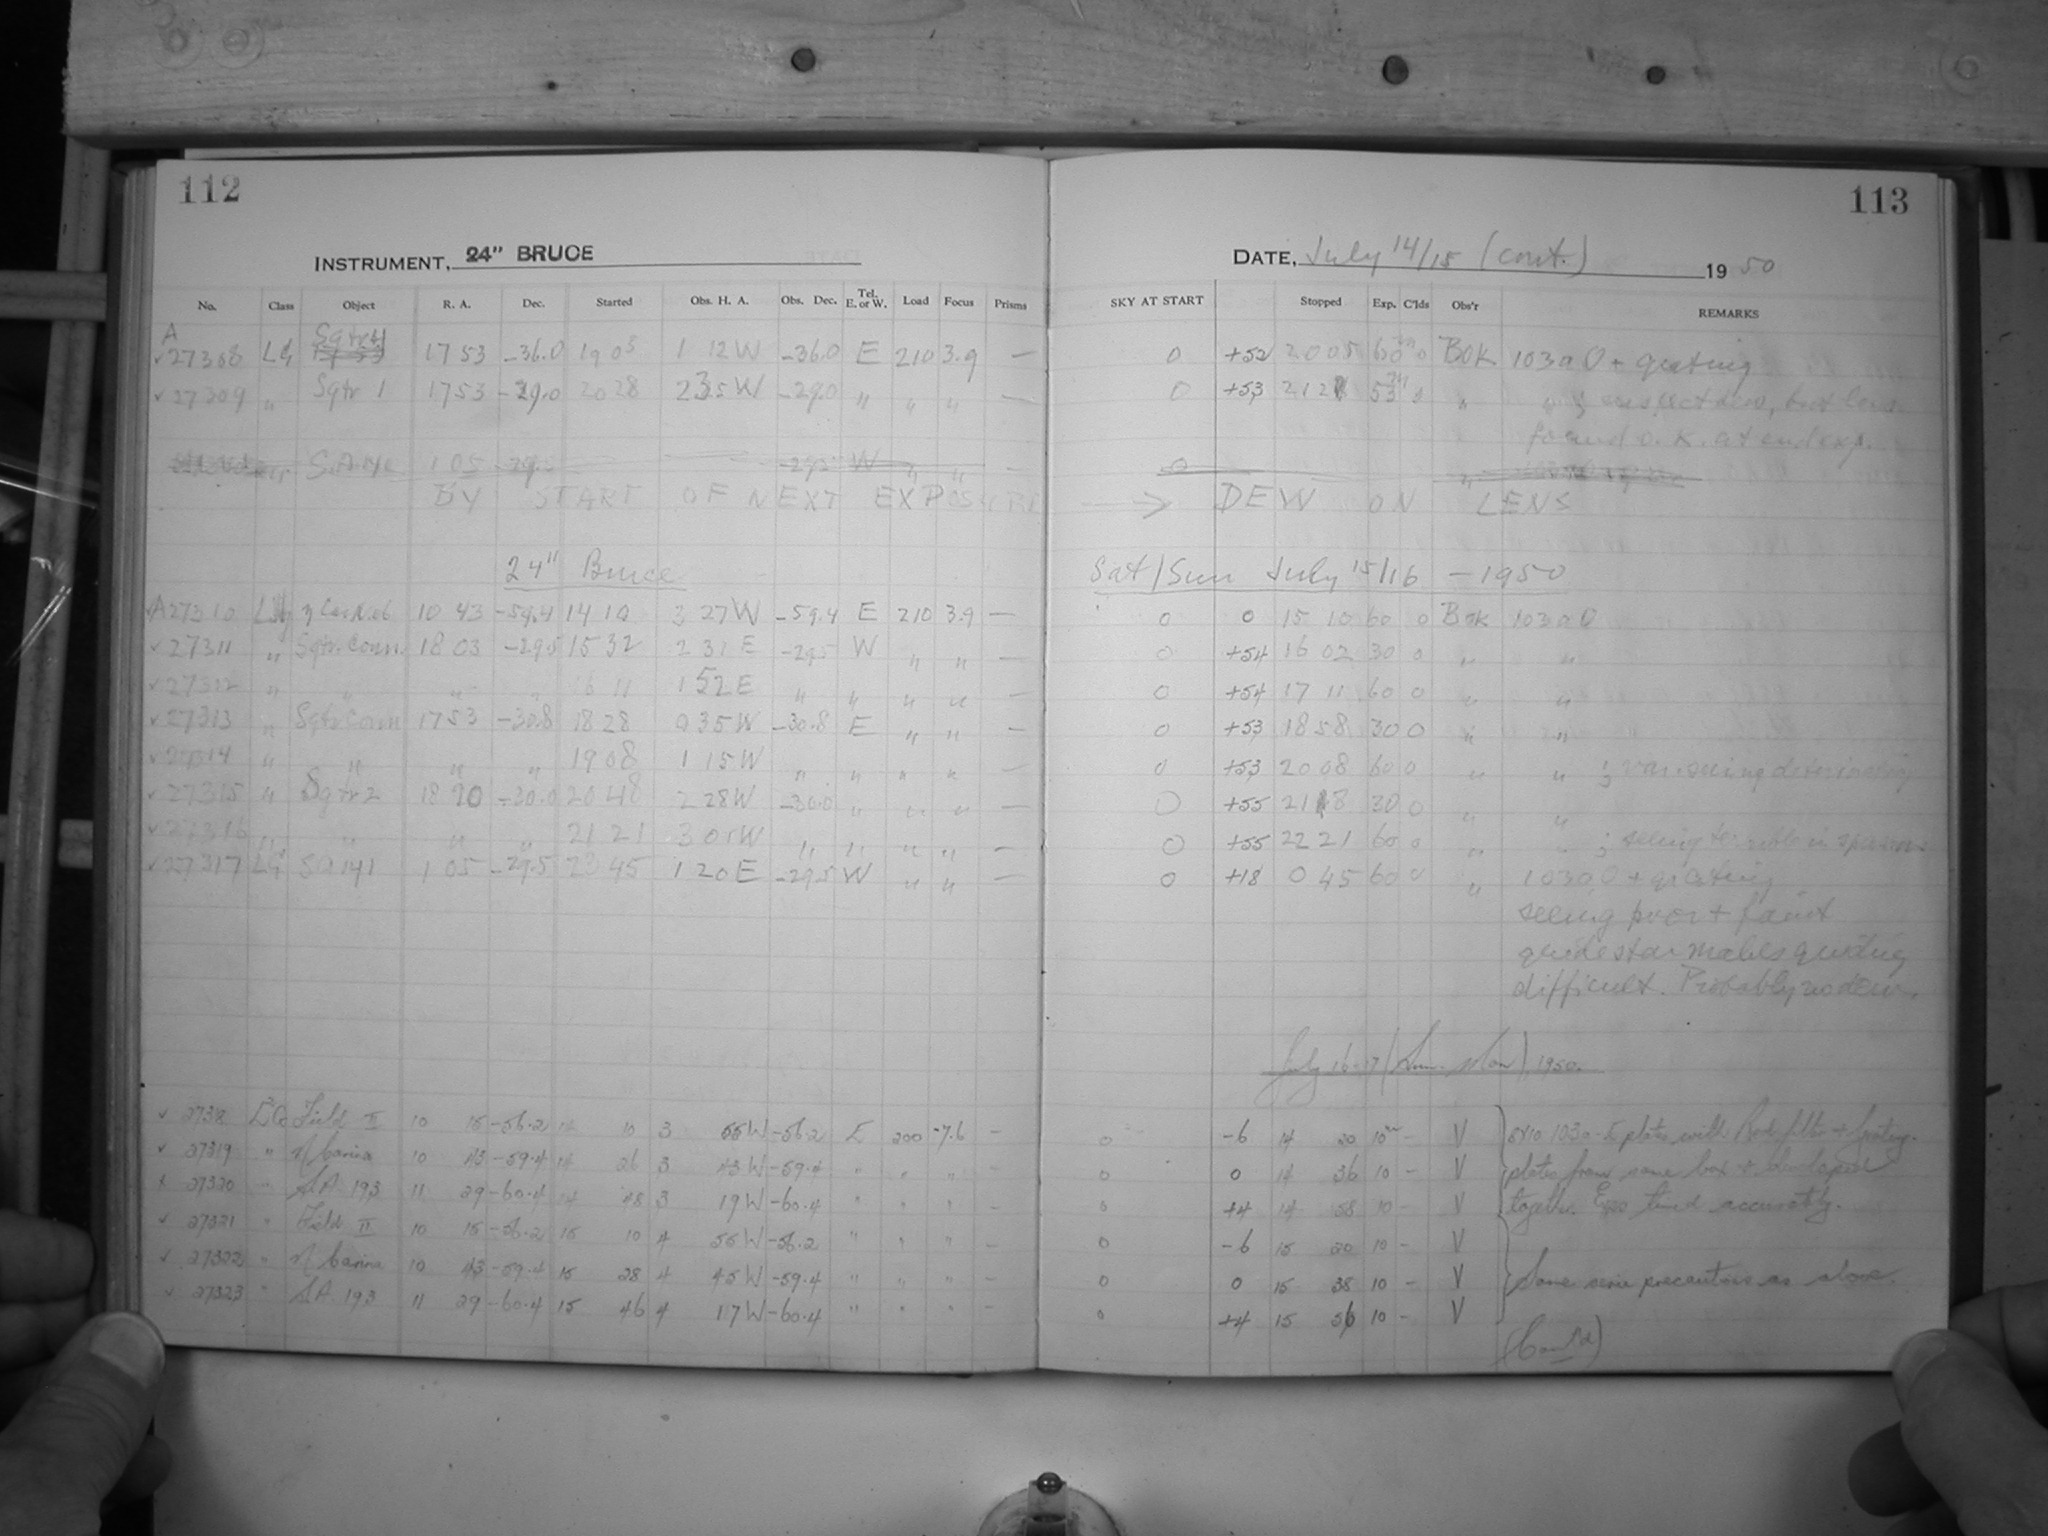 112
113
INSTRUMENT, 24" BRUCE
DATE, July 14/15 (cont.) 1950
No. Class Object R. A. Dec. Started Obs. H. A. Obs. Dec. Tel. E. or W. Load Focus Prisms SKY AT START Stopped Exp. C'lds Obs'r REMARKS
A
✓27308 LG Sgtr 4 17 53 -36.0 19 05 1 12 W -36.0 E 210 3.9 — 0 +52 20 05 60 0 BOK 103a O + grating
✓27309 " Sgtr 1 17 53 -29.0 20 28 2 35 W -29.0 " " " — 0 +53 21 21 53 0 " " ; suspect dew, but lens
found o.k. at end exp.
S.A. 141 1 05 -29.5 -29.5 W " " — 0 "
BY START OF NEXT EXPOSURE → DEW ON LENS
24" Bruce Sat/Sun July 15/16 - 1950
✓A27310 η Car. Neb 10 43 -59.4 14 10 3 27 W -59.4 E 210 3.9 — 0 0 15 10 60 0 BOK 103a O
✓27311 " Sgtr. Comm. 18 03 -29.5 15 32 2 31 E -29.5 W " " — 0 +54 16 02 30 0 " "
✓27312 " " " " 16 11 1 52 E " " " " — 0 +54 17 11 60 0 " "
✓27313 " Sgtr Comm 17 53 -30.8 18 28 0 35 W -30.8 E " " — 0 +53 18 58 30 0 " "
✓27314 " " " " 19 08 1 15 W " " " " — 0 +53 20 08 60 0 " " ; var. seeing deteriorating
✓27315 " Sgtr 2 18 10 -30.0 20 48 2 28 W -30.0 " " " — 0 +55 21 18 30 0 " "
✓27316 " " " " 21 21 3 01 W " " " " — 0 +55 22 21 60 0 " " ; seeing terrible in spasms
✓27317 LG SA 141 1 05 -29.5 23 45 1 20 E -29.5 W " " — 0 +18 0 45 60 0 " 103a O + grating
seeing poor + faint
guide star makes guiding
difficult. Probably no dew.
July 16-17 (Sun. Mon), 1950.
✓ 27318 Field II 10 15 -56.2 14 10 3 55 W -56.2 E 200 -7.6 — 0 -6 14 20 10 — V 8x10 103a-E plates with Red filter + Grating.
✓ 27319 " η Carina 10 43 -59.4 14 26 3 43 W -59.4 " " " — 0 0 14 36 10 — V plates from same box & developed
27320 " S.A. 193 11 29 -60.4 14 48 3 19 W -60.4 " " " — 0 +4 14 58 10 — V together. Exps timed accurately.
✓ 27321 " Field II 10 15 -56.2 15 10 4 55 W -56.2 " " " — 0 -6 15 20 10 — V
✓ 27322 " η Carina 10 43 -59.4 15 28 4 45 W -59.4 " " " — 0 0 15 38 10 — V Same precautions as above.
✓ 27323 " S.A. 193 11 29 -60.4 15 46 4 17 W -60.4 " " " — 0 +4 15 56 10 — V
(Cont'd)